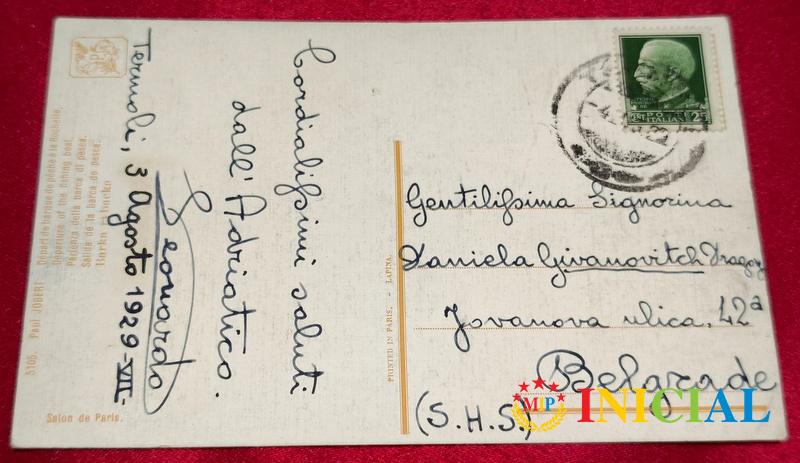 Cordialissimi saluti
dall'Adriatico.
Leonardo
Termoli, 3 Agosto 1929-VII-
Départ de barque de pêche à la Rochelle.
Departure of the fishing boat.
Partenza della barca di pesca.
Salida de la barca de pesca.
5106. Paul JOBERT
Salon de Paris.
PRINTED IN PARIS. - LAPINA.
POSTE
ITALIANE
25
Gentilissima Signorina
Daniela Givanovitch
Jovanova ulica, 42ª
Belgrade
(S.H.S.)
MIP INICIAL